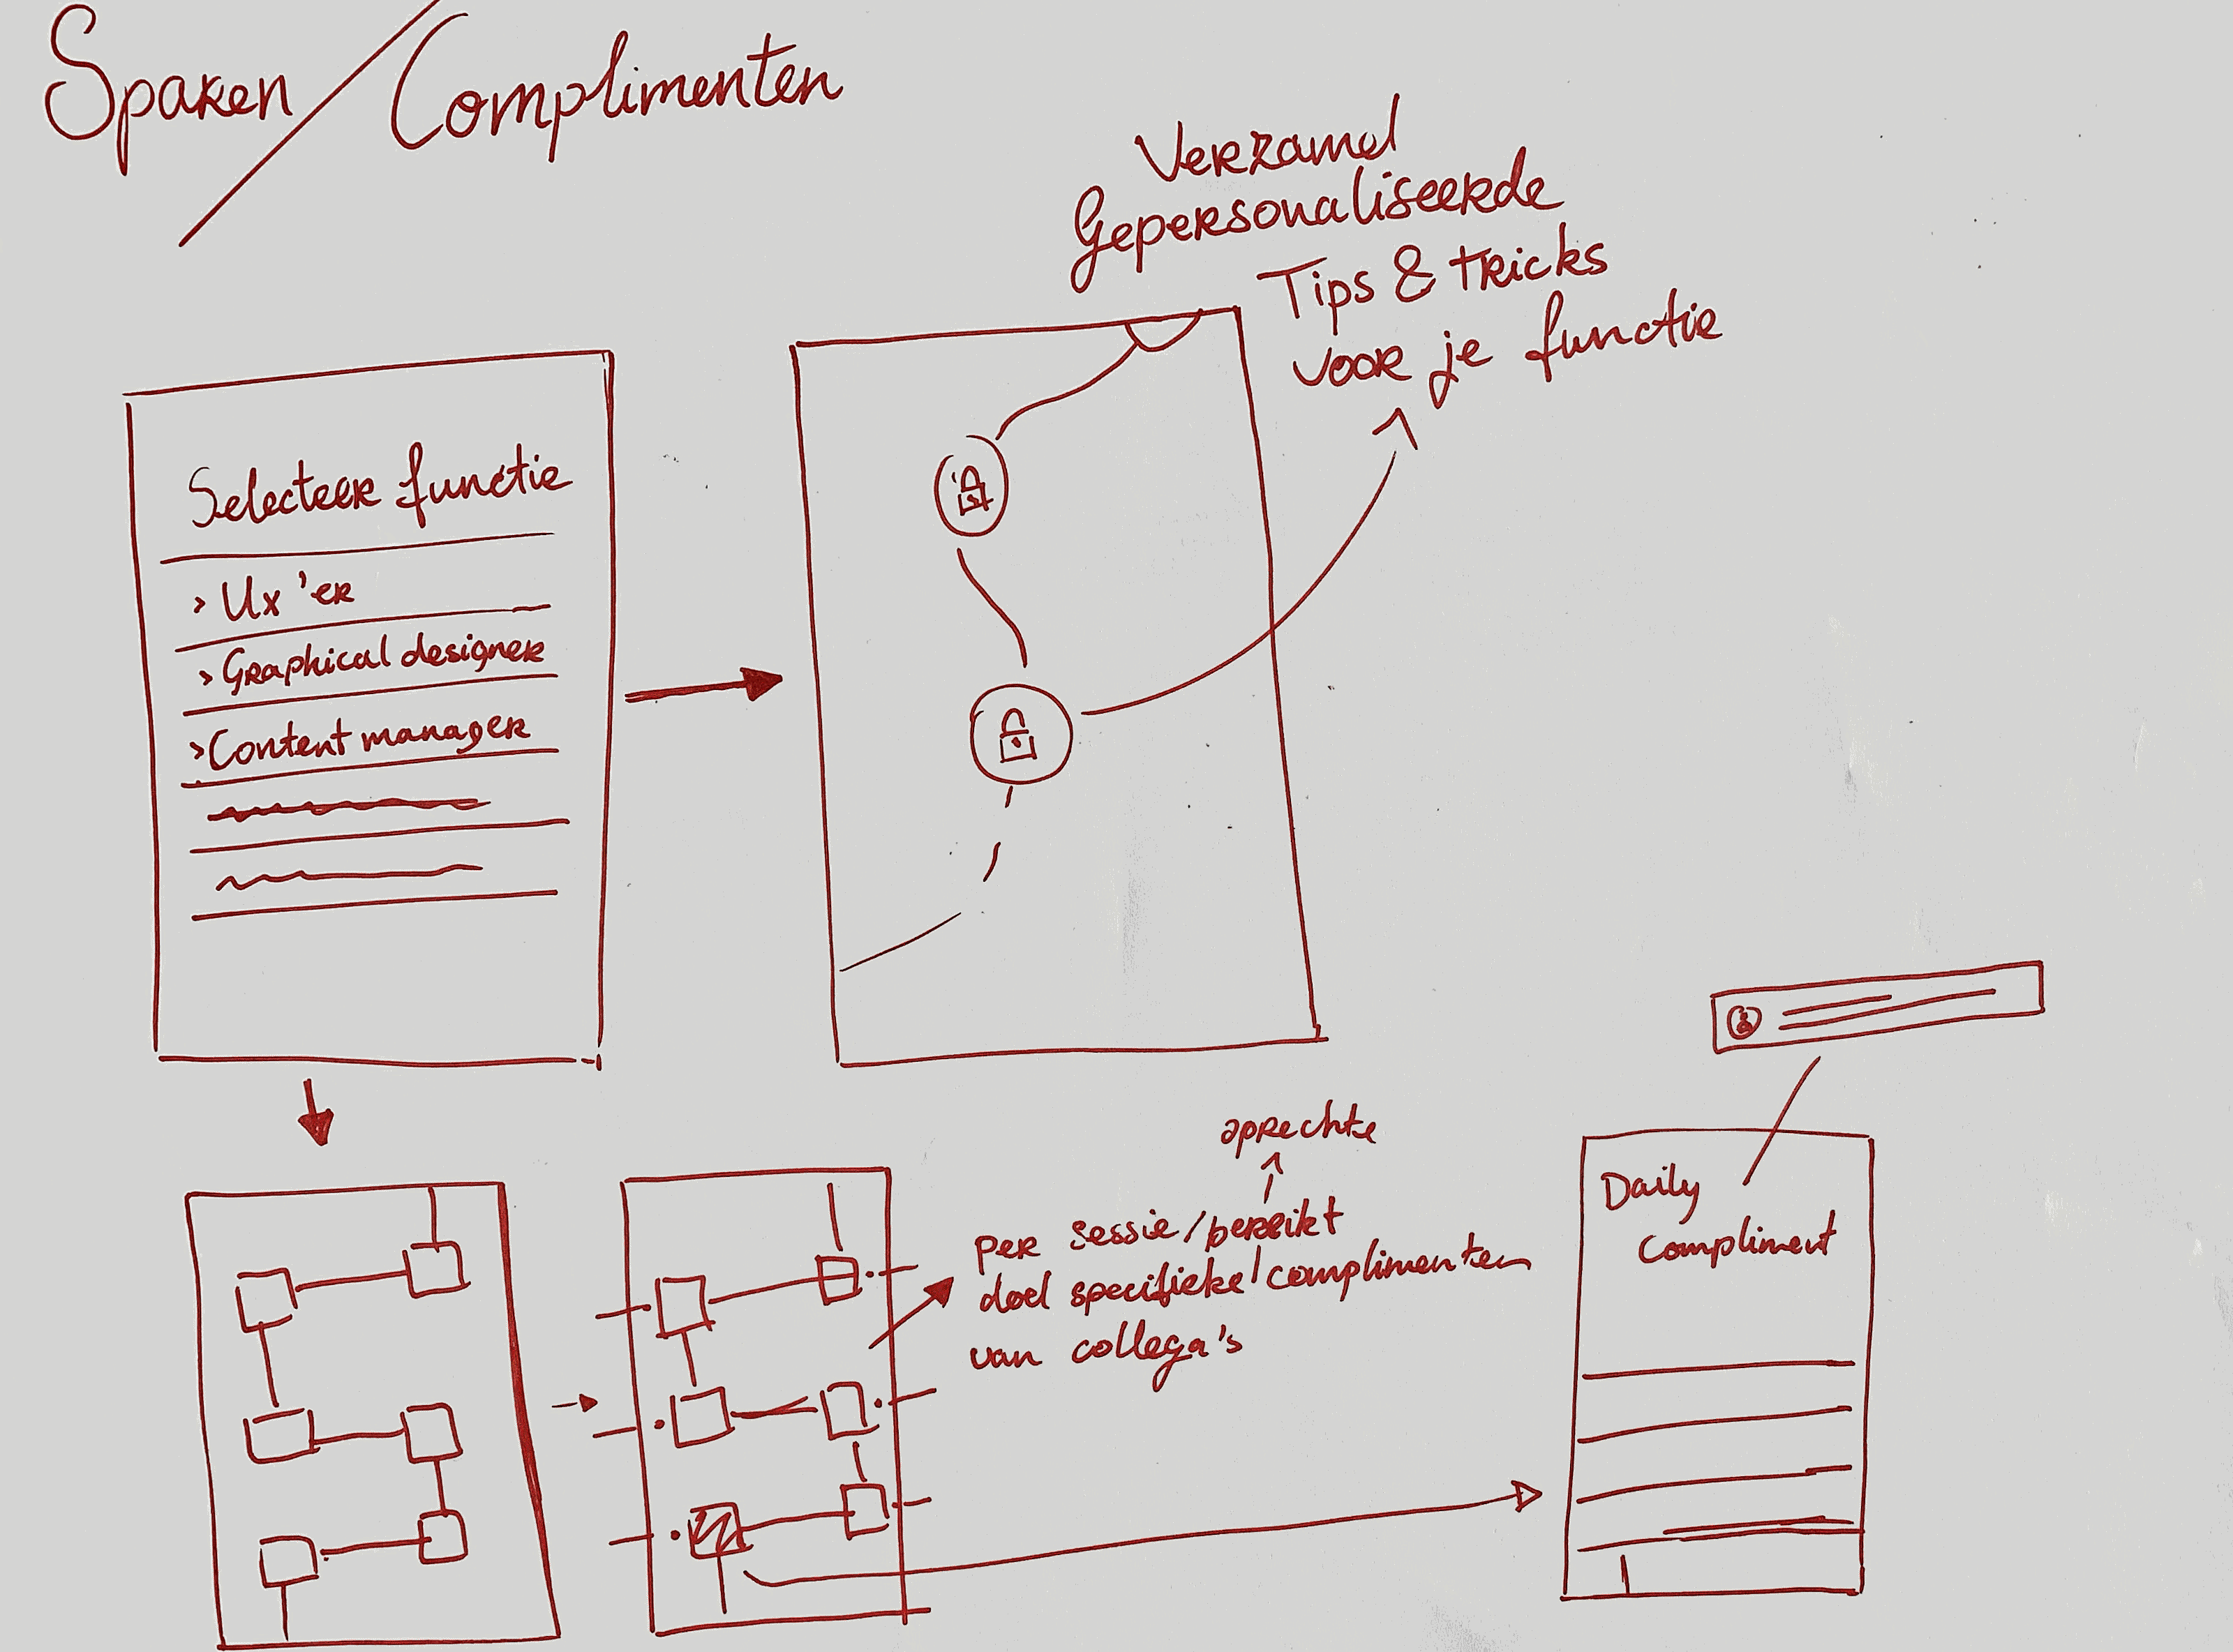 Sparen / Complimenten
Verzamel
Gepersonaliseerde
Tips & tricks
voor je functie
Selecteer functie
> Ux'er
> Graphical designer
> Content manager
oprechte
per sessie/bereikt
doel specifieke complimenten
van collega's
Daily
Compliment